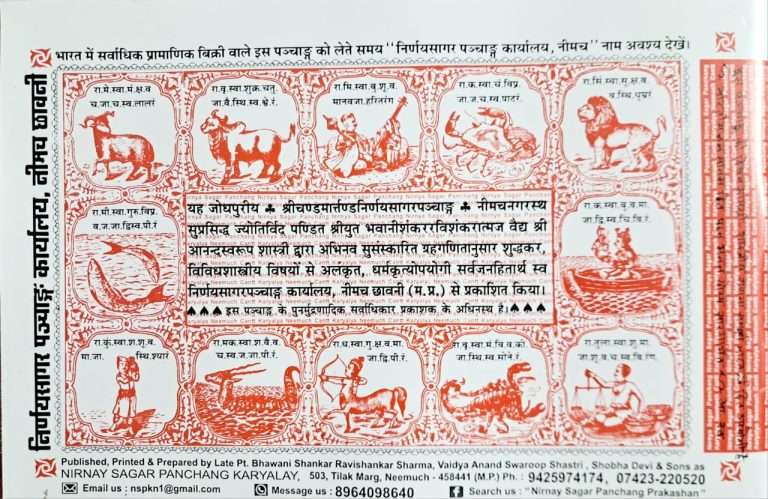 भारत में सर्वाधिक प्रामाणिक बिक्री वाले इस पञ्चाङ्ग को लेते समय "निर्णयसागर पञ्चाङ्ग कार्यालय, नीमच" नाम अवश्य देखें।
निर्णयसागर पञ्चाङ्ग कार्यालय, नीमच छावनी
रा.मे.स्वा.मं.क्ष.व
च.जा.च.स्व.लालरं
रा.वृ.स्वा.शुक्र.चतु
जा.वै.स्थि.स्व.श्वे.रं.
रा.मि.स्वा.बु.शू.व
मानवजा.हरितरंग
रा.क.स्वा.चं.विप्र.
जा.ज.च.स्व.पाटरं.
रा.सिं.स्वा.सू.क्ष.व
व.स्थि.धूम्ररं
रा.मी.स्वा.गुरु.विप्र.
व.ज.जा.द्विस्व.पी.रं
रा.क.स्वा.बु.व.मा.
जा.द्वि.स्वि.चि.रं.
यह जोधपुरीय ♣ श्रीचण्डमार्त्तण्डनिर्णयसागरपञ्चाङ्ग ♣ नीमचनगरस्थ
सुप्रसिद्ध ज्योतिर्विद पण्डित श्रीयुत भवानीशंकररविशंकरात्मज वैद्य श्री
आनन्दस्वरूप शास्त्री द्वारा अभिनव सुसंस्कारित ग्रहगणितानुसार शुद्धकर,
विविधशास्त्रीय विषयों से अलकृत, धर्मकृत्योपयोगी सर्वजनहितार्थ स्व
निर्णयसागरपञ्चाङ्ग कार्यालय, नीमच छावनी (म.प्र.) से प्रकाशित किया।
♠♠♠ इस पञ्चाङ्ग के पुनर्मुद्रणादिक सर्वाधिकार प्रकाशक के अधिनस्थ है। ♠♠♠
रा.कुं.स्वा.श.शू.व.
मा.जा. स्थि.श्यारं
रा.मक.स्वा.श.वै.व.
च.स्व.ज.जा.पी.रं.
रा.ध.स्वा.गु.क्ष.व.मा.
जा.द्वि.पी.रं.
रा.वृ.स्वा.मं.वि.व.की
जा.स्थि.स्व सोने.रं.
रा.तुला स्वा.शु.मा.
जा.शू.व.च.स्व.वि.रंग.
Published, Printed & Prepared by Late Pt. Bhawani Shankar Ravishankar Sharma, Vaidya Anand Swaroop Shastri, Shobha Devi & Sons as
NIRNAY SAGAR PANCHANG KARYALAY, 503, Tilak Marg, Neemuch - 458441 (M.P.) Ph. : 9425974174, 07423-220520
Email us : nspkn1@gmail.com Message us : 8964098640 Search us : "Nirnay Sagar Panchang Prakashan"